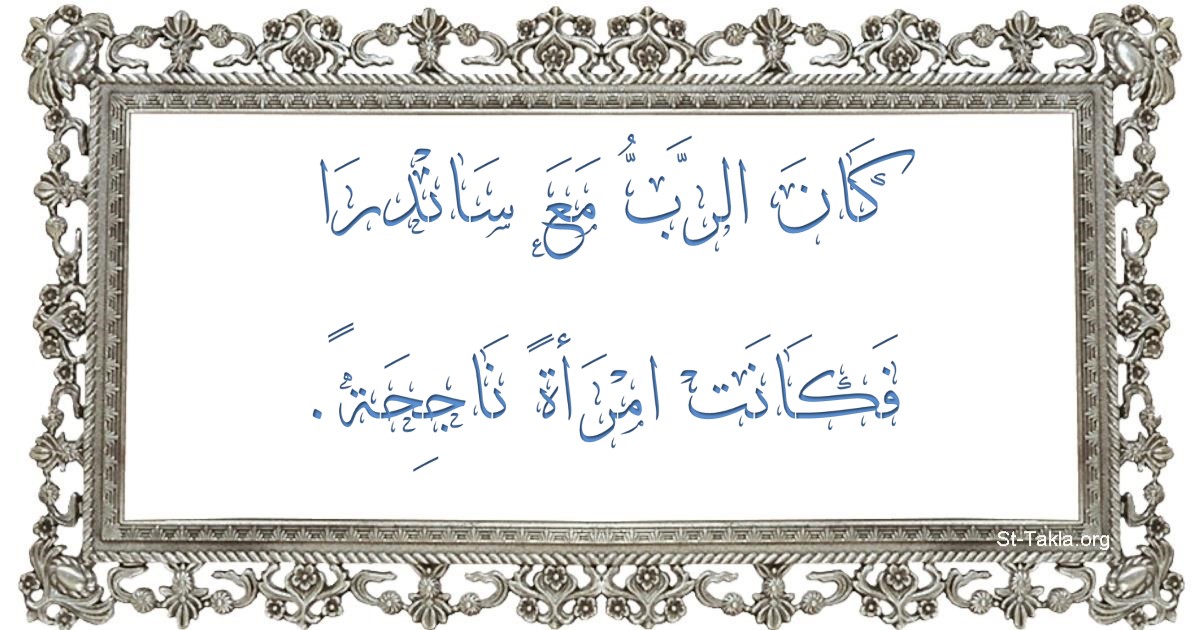 كَانَ الرَّبُّ مَعَ سَانْدرَا
فَكَانَتْ امْرَأةً نَاجِحَةً.
St-Takla.org